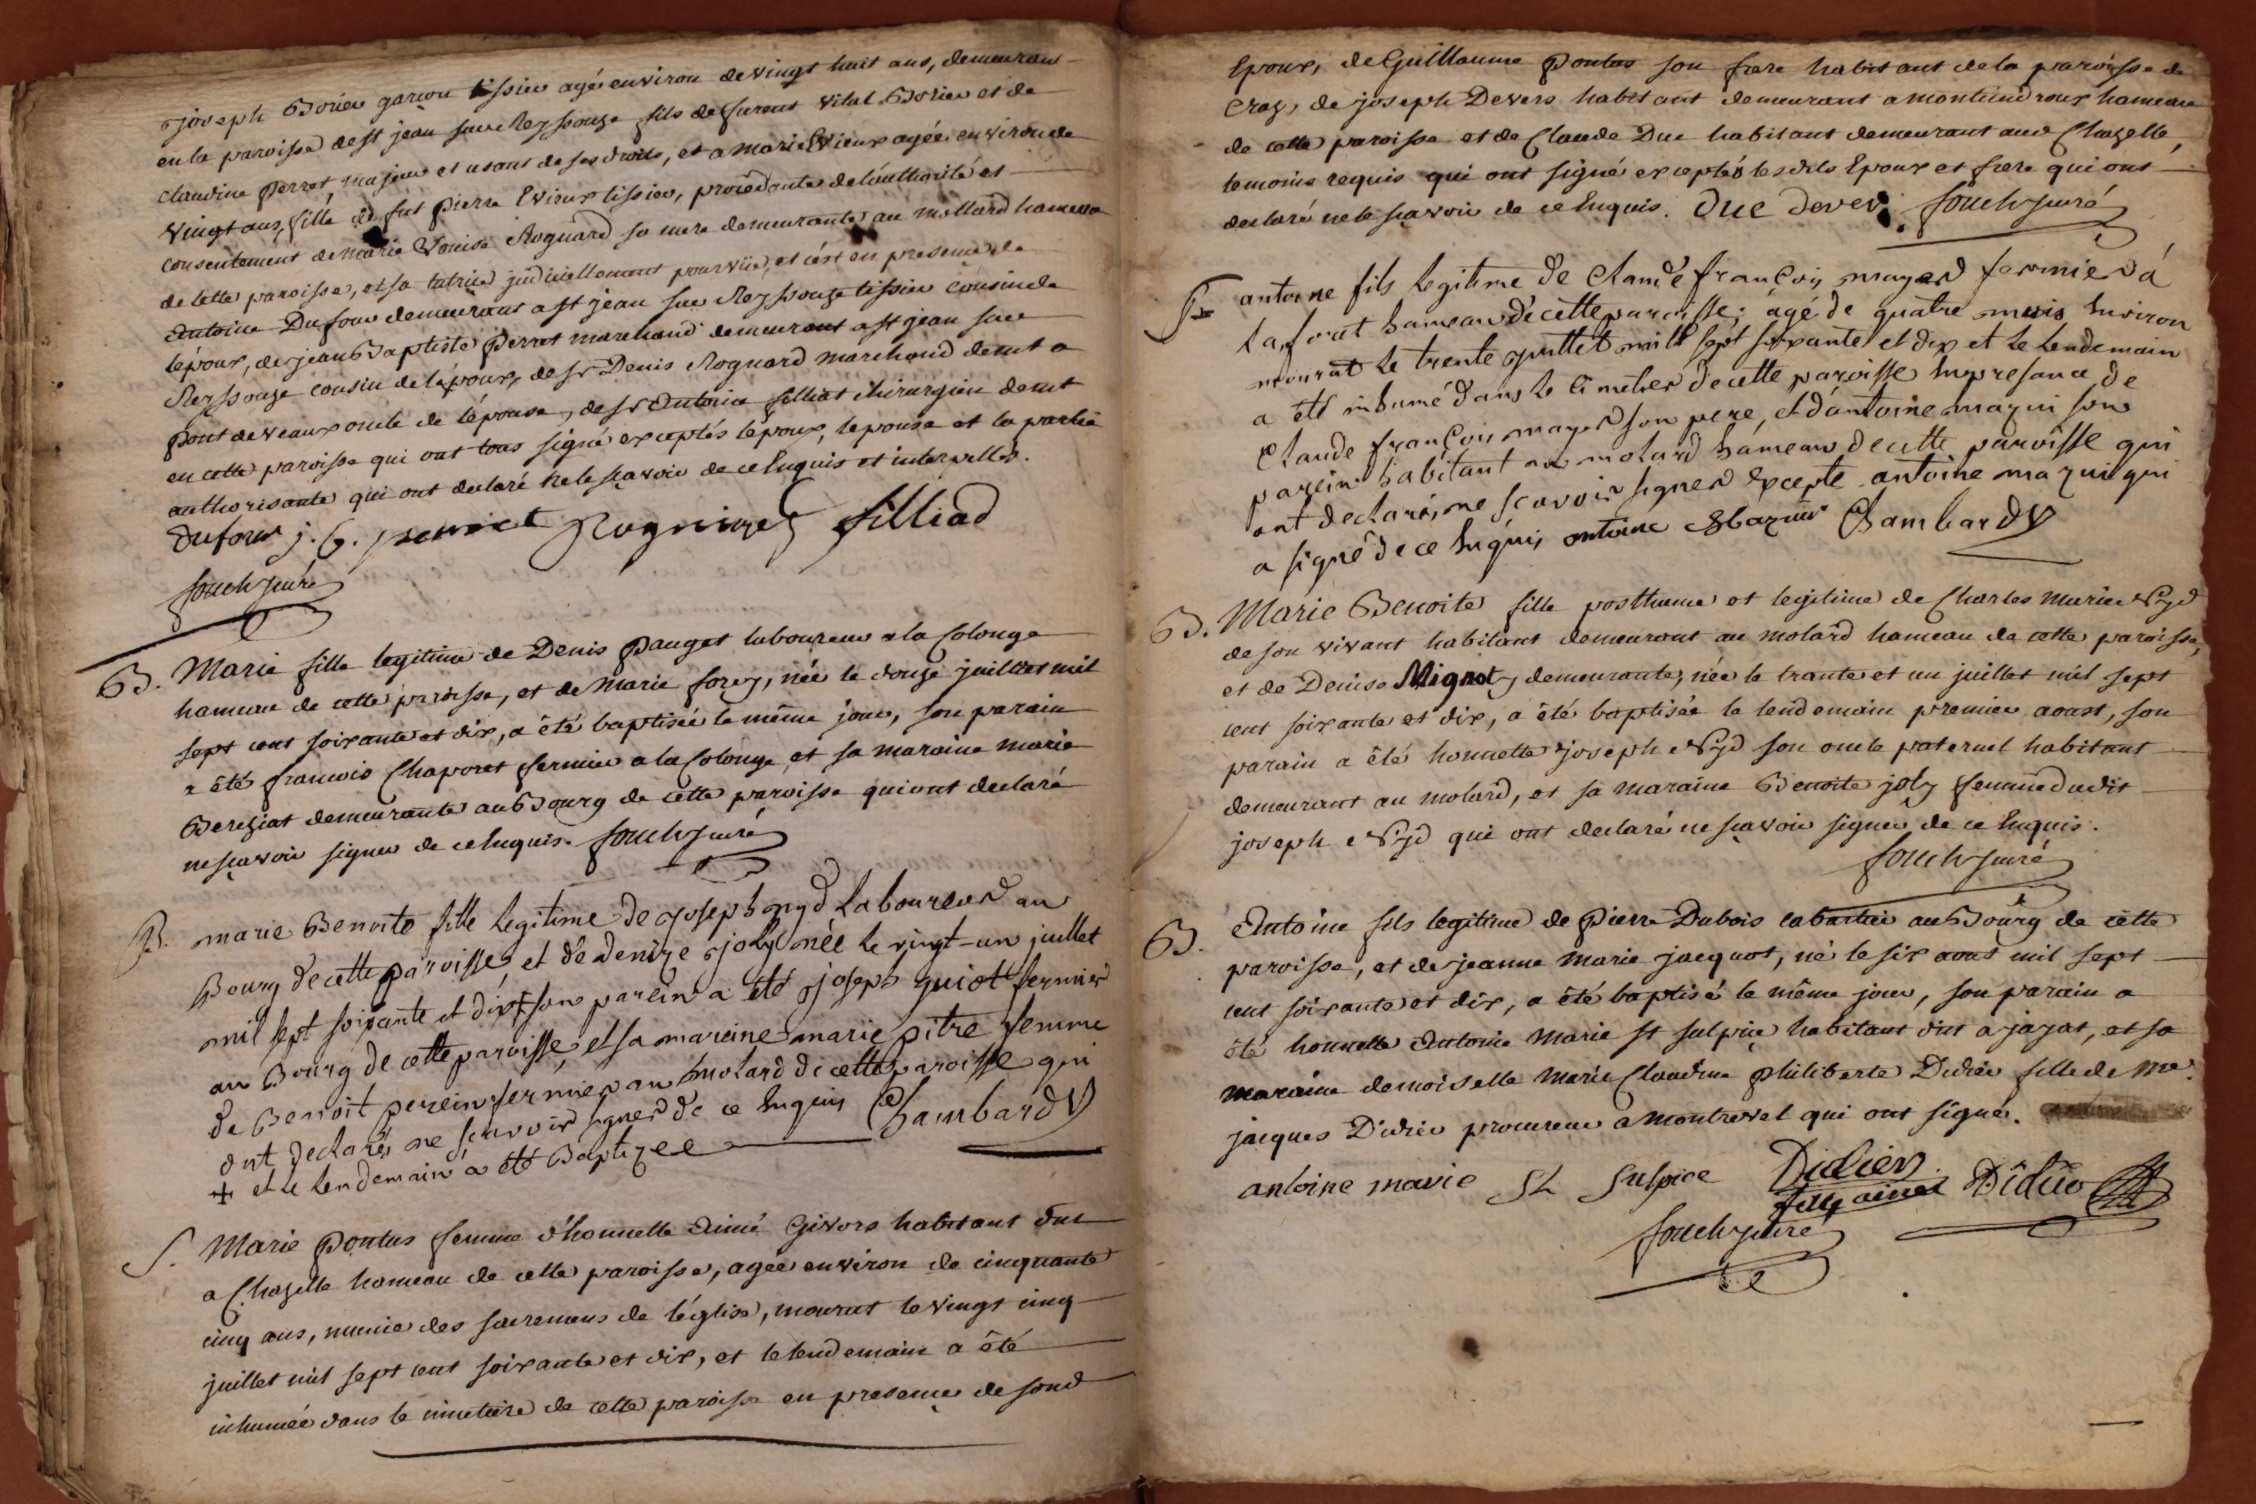 joseph Borier garçon tissier agé environ de vingt huit ans, demeurant
en la paroisse de st jean sur Reyssouze fils de furent vital Borier et de
Claudine Perret majeur et usant de ses droits, et a marie Evieux agée environ de
vingt ans, fille de fut pierre Evieux tissier, procedante de l'authorité et
consentement de marie Louise Rognard sa mere demeurante au mollard hameau
de cette paroisse, et sa tutrice judiciellement pourvüe, et c'est en presence de
Antoine Dufour demeurant a st jean sur Reyssouze tissier cousin de
lépoux, de jean Baptiste Perret marchand demeurant a st jean sur
Reyssouze cousin de lépoux, de sr Denis Rognard marchand demt a
pont de veaux oncle de lépouse, de sr Antoine filliat chirurgien demt
en cette paroisse qui ont tous signé exceptés lépoux, lepouse et la partie
authorisante qui ont declaré ne le sçavoir de ce Enquis et interpellés.
Dufour j. b. perret Rogniard filliad
fouch curé
B. Marie fille legitime de Denis Pauget laboureur a la Colonge
hameau de cette paroisse, et de Marie forey, née le douze juillet mil
sept cent soixante et dix, a été baptisée le même jour, son parain
a été francois Chaporet fermier a la Colonge, et sa maraine marie
Bereziat demeurante au Bourg de cette paroisse qui ont declaré
ne sçavoir signer de ce Enquis. fouch curé
B. marie Benoite fille legitime de joseph nyd Laboureur au
Bourg de cette paroisse, et de denize joly née le vingt-un juillet
mil sept soixante et dix + son parein a été joseph guiot fermier
au Bourg de cette paroisse, et sa mareine marie pitre femme
de Benoit perrein fermier au molard de cette paroisse qui
ont declarés ne scavoir signer de ce Enquis Chambard V
+ et le lendemain a été Baptizee
S. Marie Pontus femme d'honnette Aimé Givors habitant dmt
a Chazelle hameau de cette paroisse, agée environ de cinquante
cinq ans, munie des sacremens de l'église, mourut le vingt cinq
juillet mil sept cent soixante et dix, et le lendemain a été
inhumée dans le cimetiere de cette paroisse en presence de sond
Epoux, de Guillaume Pontus son frere habitant de la paroisse de
Craz, de joseph Devers habitant demeurant a montcindroux hameau
de cette paroisse et de Claude Duc habitant demeurant aud Chazelle,
temoins requis qui ont signé exceptés lesdits Epoux et frere qui ont
declaré ne le sçavoir de ce Enquis. Duc Dever fouch curé
S. antoine fils legitime de Claude françois mayer fermier à
la forat hameau de cette paroisse; âgé de quatre mois Environ
mourut le trente juillet mille sept soixante et dix et le lendemain
a été inhumé dans le cimetier de cette paroisse Enpresance de
Claude françois mayer son pere, et d'antoine mazuir son
parein habitant au molard hameau de cette paroisse qui
ont declarés ne scavoir signer Excepte antoine mazuir qui
a signé de ce Enquis antoine Mazuir Chambard V
B. Marie Benoite fille posthume et legitime de Charles Marie Nyd
de son vivant habitant demeurant au molard hameau de cette paroisse,
et de Denise Mignot y demeurante, née le trante et un juillet mil sept
cent soixante et dix, a été baptisée le lendemain premier aoust, son
parain a été honnette joseph Nyd son oncle paternel habitant
demeurant au molard, et sa maraine Benoite joly femme dudit
joseph Nyd qui ont declaré ne sçavoir signer de ce Enquis.
fouch curé
B. Antoine fils legitime de Pierre Dubois cabartier au Bourg de cette
paroisse, et de jeanne Marie jacquot, né le six aout mil sept
cent soixante et dix, a été baptisé le même jour, son parain a
été honnette Antoine Marie st sulpice habitant dmt a jayat, et sa
maraine demoiselle Marie Claudine philiberte Didier fille de Me.
jacques Didier procureur a montrevel qui ont signé.
antoine marie St Sulpice Didier
fille ainée Didier
fouch curé